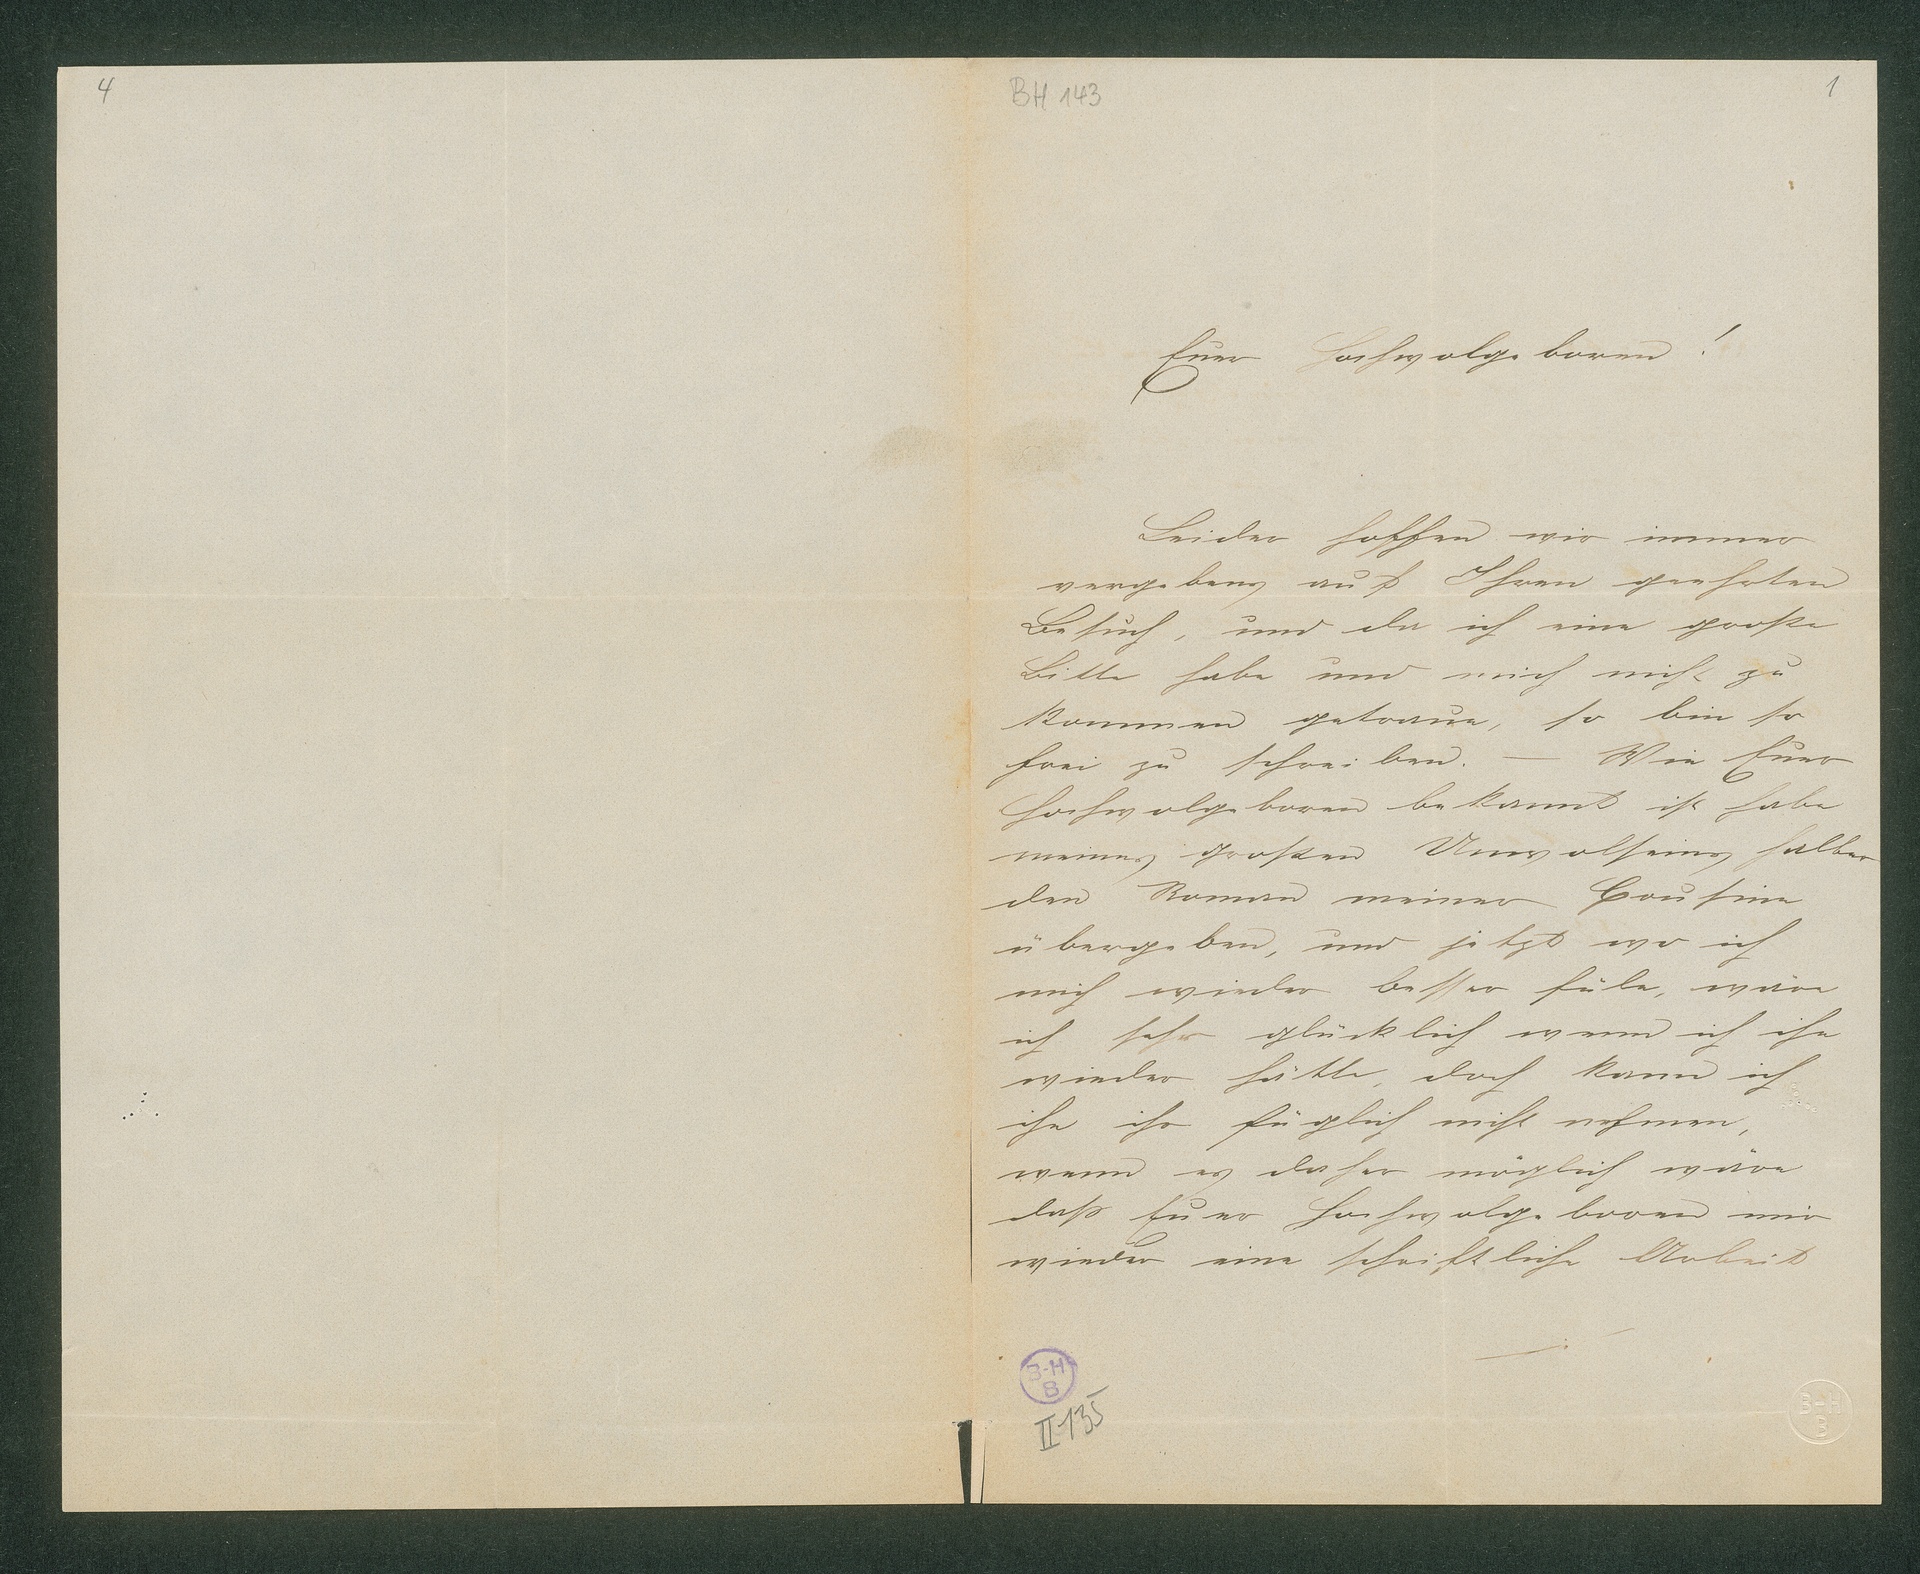 4
BH 143
1
Euer Hochwolgeboren!
Leider hoffen wir immer
vergebens auf Ihren geehrten
Besuch, und da ich eine große
Bitte habe und mich nicht zu
kommen getraue, so bin so
frei zu schreiben. — Wie Euer
Hochwolgeboren bekannt ist habe
meines großen Unwolseins halber
den Roman meiner Cousine
übergeben, und jetzt wo ich
mich wieder besser füle, wäre
ich sehr glücklich wenn ich ihn
wieder hätte, doch kann ich
ihn ihr füglich nicht nehmen,
wenn es daher möglich wäre
daß Euer Hochwolgeboren mir
wieder eine schriftliche Arbeit
B-H
B
II-135
B-H
B